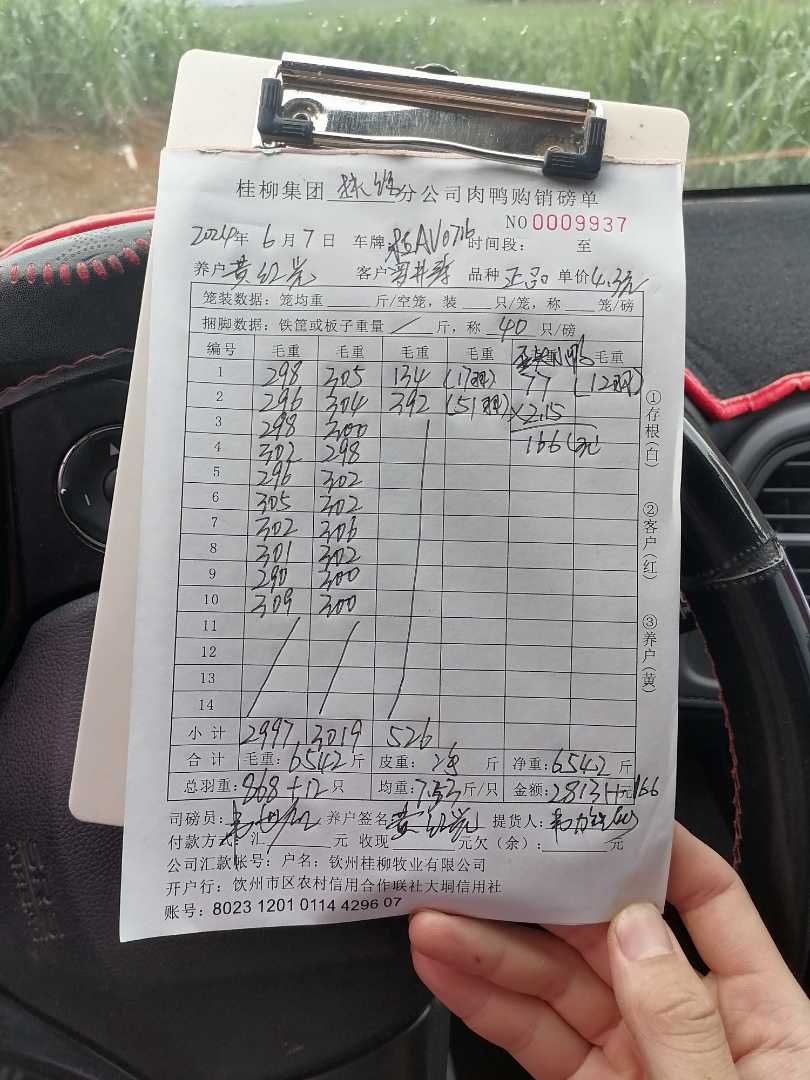 桂柳集团 分公司肉鸭购销磅单
NO 0009937
2024年 6月7日 车牌 AV0716 时间段: 至
养户 黄红光 客户 品种 正品 单价 4.3元
笼装数据: 笼均重 斤/空笼, 装 只/笼, 称 笼/磅
捆脚数据: 铁筐或板子重量 / 斤, 称 40 只/磅
编号 毛重 毛重 毛重 毛重 毛重
1 298 305 134 (17羽) 77 (12羽)
2 296 304 392 (51羽) ×2.15
3 298 300
4 302 298 166元
5 296 302
6 305 302
7 302 306
8 301 302
9 290 300
10 309 300
11
12
13
14
小计 2997 3019 526
合计 毛重: 6542斤 皮重: 斤 净重: 6542斤
总羽重: 868+12只 均重: 7.53斤/只 金额: 28131元+166
司磅员: 养户签名 黄红光 提货人:
付款方式: 汇 元 收现 元欠(余): 元
公司汇款帐号: 户名: 钦州桂柳牧业有限公司
开户行: 钦州市区农村信用合作联社大垌信用社
账号: 8023 1201 0114 4296 07
①存根(白)
②客户(红)
③养户(黄)